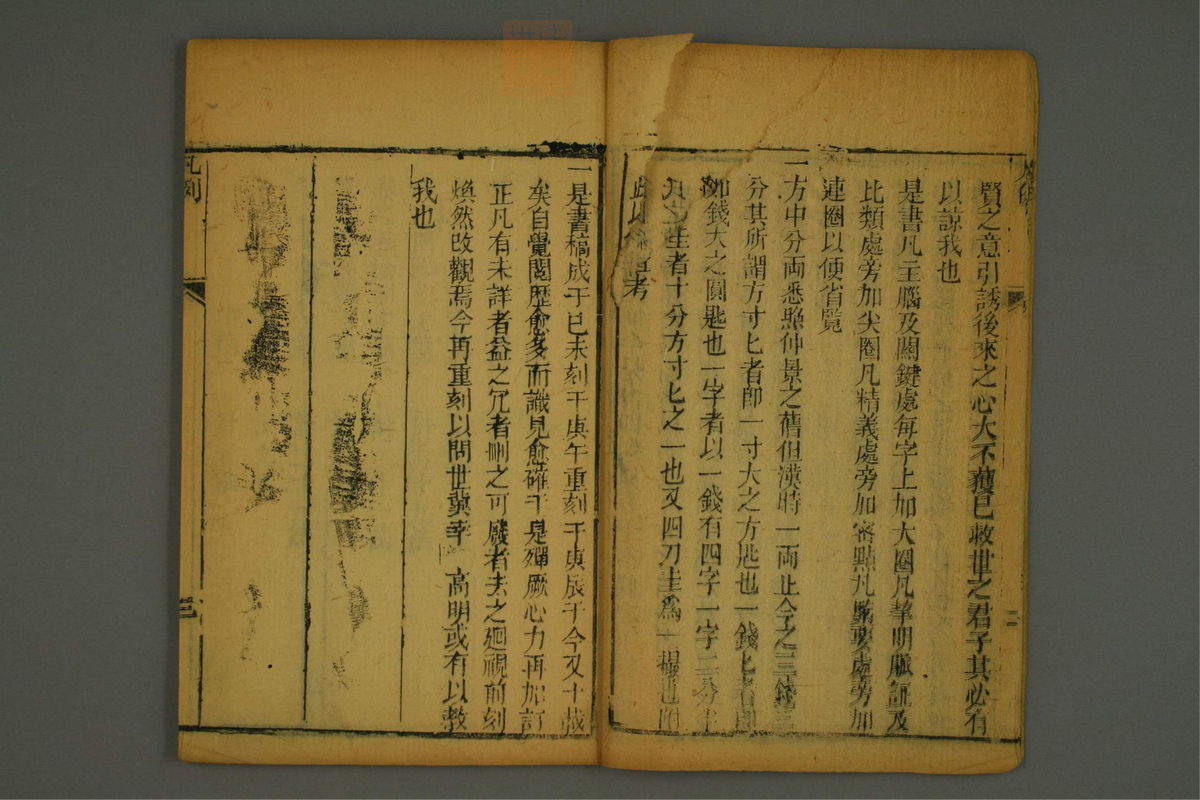 凡例
賢之意引誘後來之心大不獲已救世之君子其必有
以諒我也
是書凡主腦及關鍵處每字上加大圈凡挈明脈証及
比類處旁加尖圈凡精義處旁加密點凡緊要處旁加
連圈以便省覽
一方中分両悉照仲景之舊但漢時一両止今之三錢三
分其所謂方寸匕者即一寸大之方匙也一錢匕者即
如錢大之圓匙也一字者以一錢有四字一字二分半
刀圭者十分方寸匕之一也又四刀圭為一撮也附
此以俻考
二
一是書稿成于已未刻于庚午重刻于庚辰于今又十載
矣自覺閱歷愈多而識見愈確于是殫厥心力再加訂
正凡有未詳者益之冗者刪之可廢者去之廻視前刻
煥然改觀焉今再重刻以問世冀幸 高明或有以教
我也
凡例
三